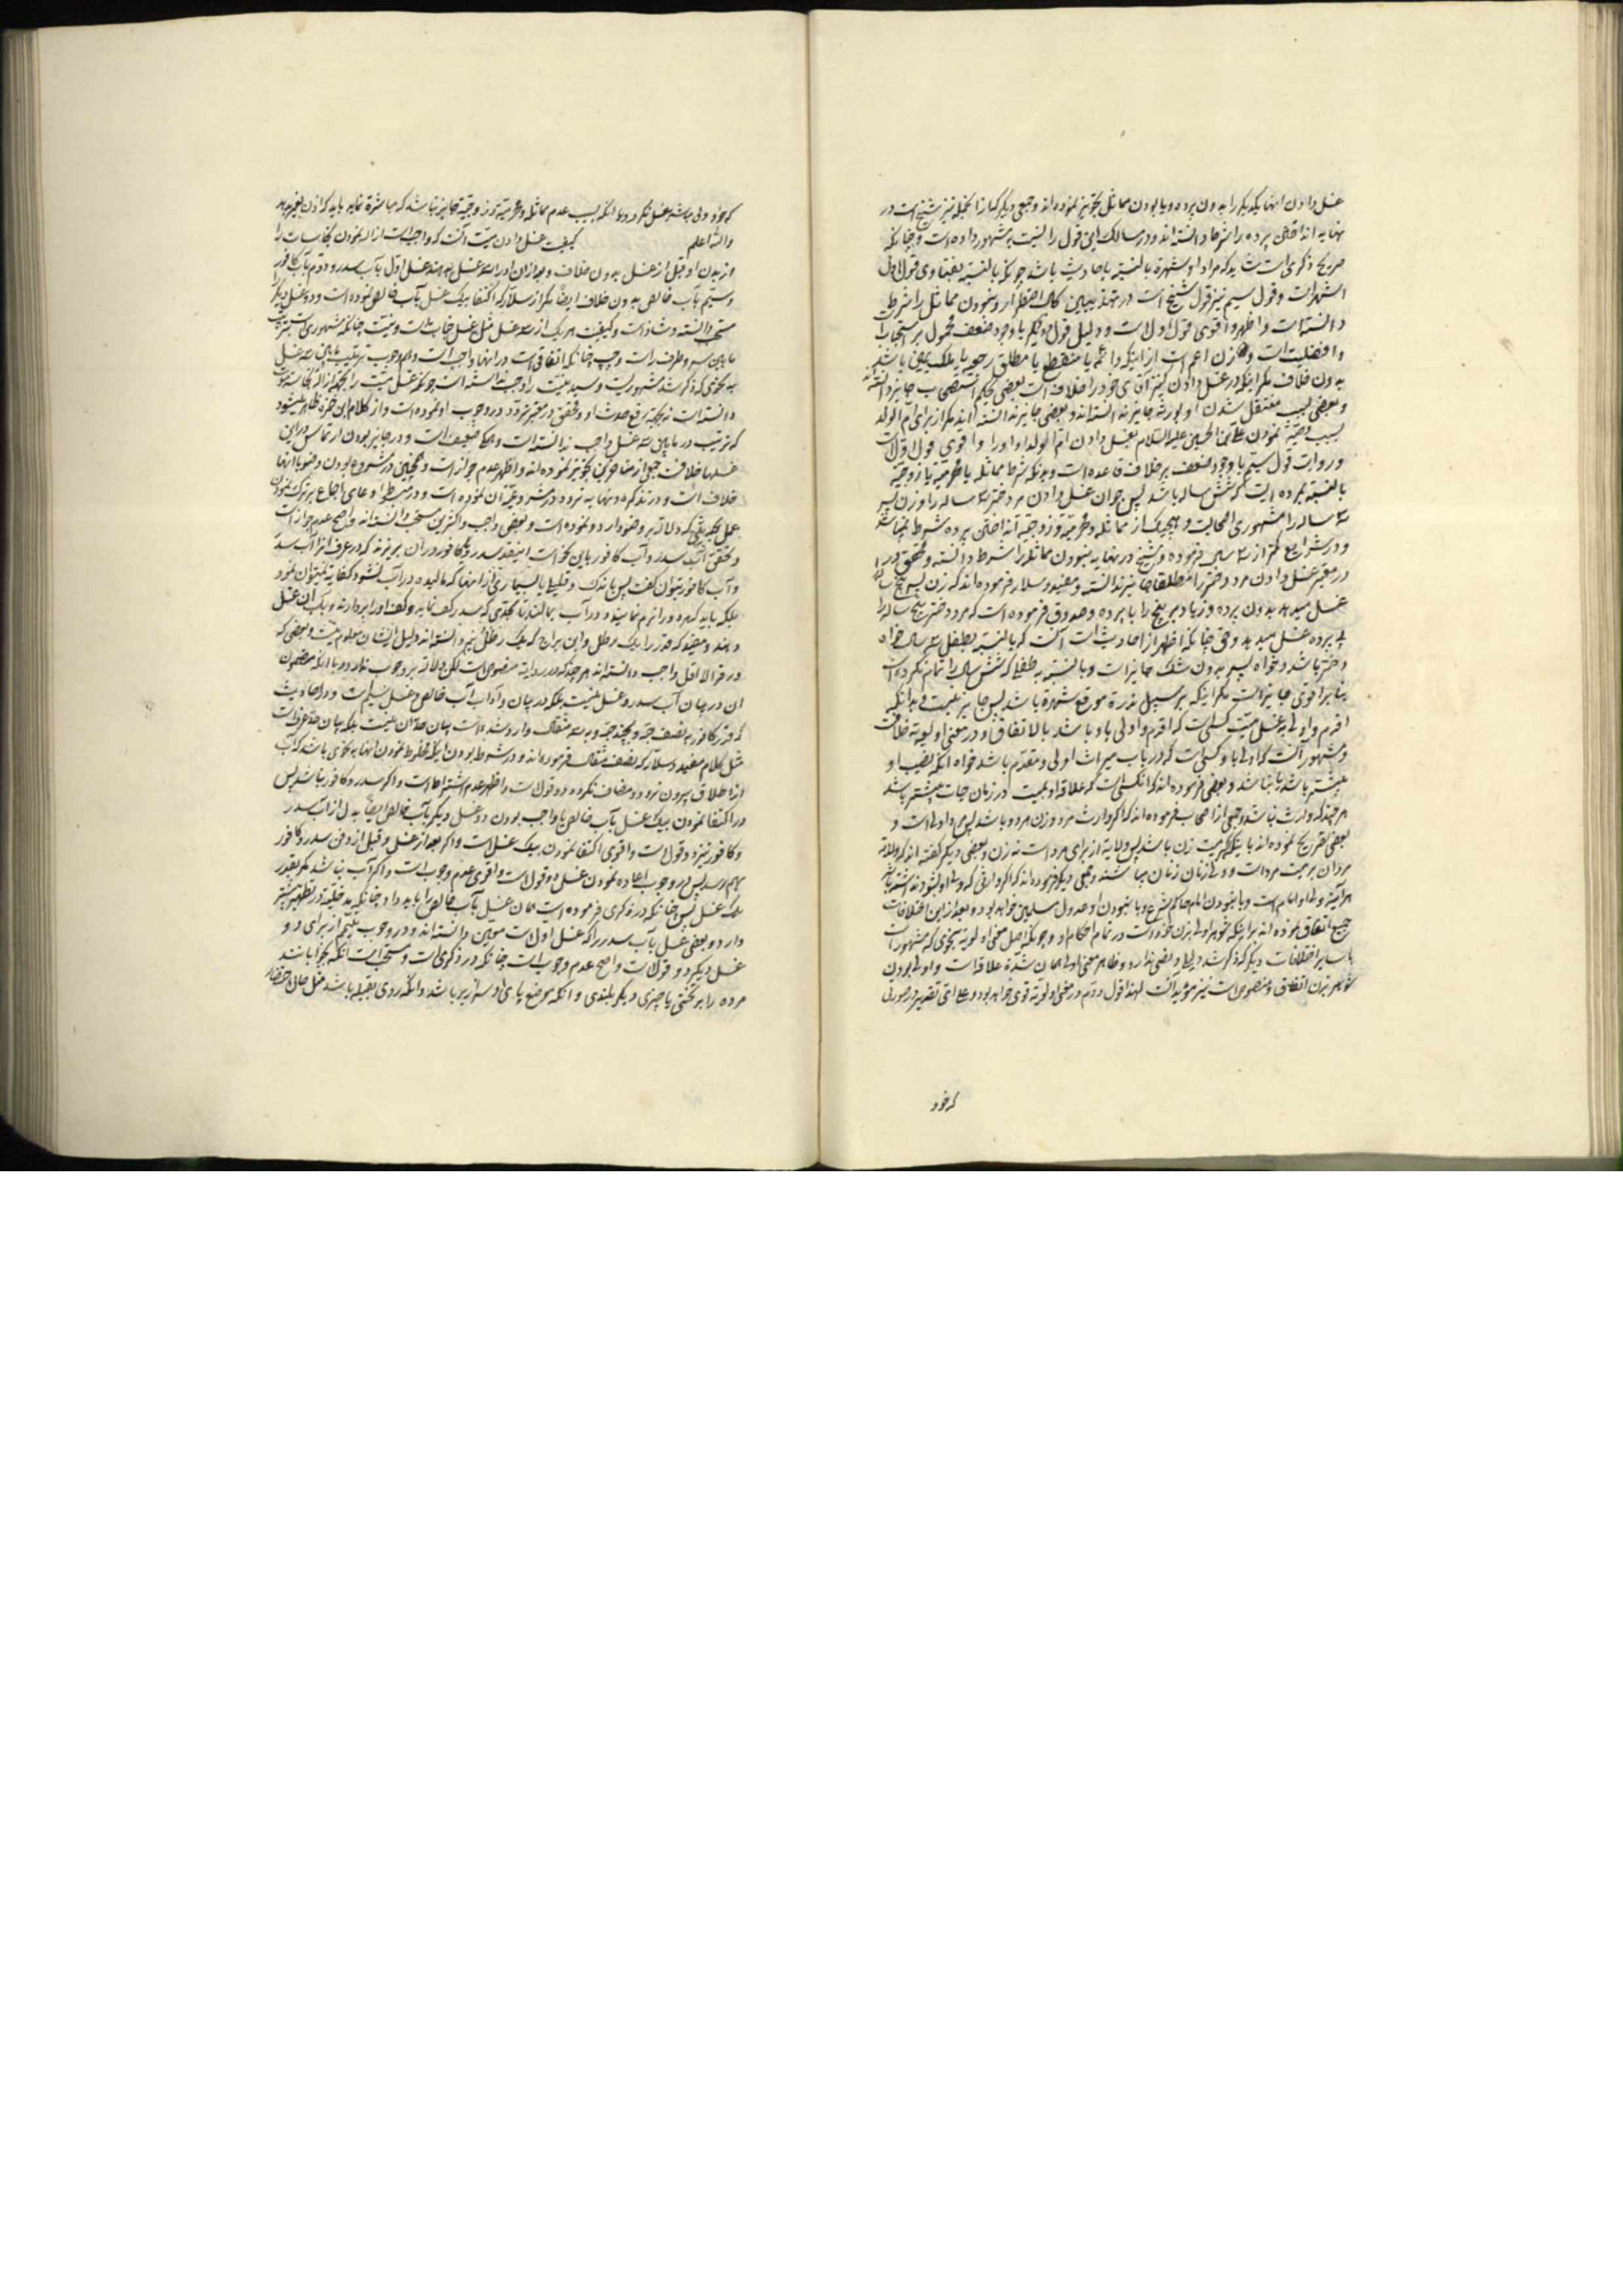 غسل دادن اینها یکدیگر را بدون پرده و با بودن مماثل تجویز نموده اند و جمعی دیگر که از انجمله نیز شیخ است در
نهایه انداختن پرده را شرط دانسته اند و در مسالک این قول را نسبت بمشهور داده است و چنانکه
صریح ذکری است شاید که مراد او شهرة بالنسبة باحادیث باشد چونکه بالنسبة بفتاوی قول اول
اشهر است و قول سیم نیز قول شیخ است در تهذیب که حال اضطرار و نبودن مماثل را شرط
دانسته است و اظهر و اقوی قول اول است و دلیل قول با وجود ضعف محمول بر استحباب
و افضلیت است و زن اعم است از اینکه دائمه یا منقطع یا مطلقه رجعیه یا بملک یمین باشد
بدون خلاف مگر اینکه در غسل دادن کنیز آقای خود را خلاف است بعضی بحکم استصحاب جایز دانسته اند
و بعضی بسبب منتقل شدن او بورثه جایز ندانسته اند و بعضی جایز ندانسته اند مگر از برای ام الولد
بسبب وصیة نمودن علی بن الحسین علیه السلام بغسل دادن ام الولد او او را و اقوی قول اول است
و روایت قول سیم با وجود ضعف بر خلاف قاعده است و بدانکه شرط مماثلة یا محرمیة یا زوجیة
بالنسبة بمرده ایست که شش ساله باشد پس جواز غسل دادن مرد دختر سه ساله را و زن پسر
سه ساله را مشهوری اصحاب است و هیچیک از مماثلة و محرمیة و زوجیة انداختن پرده شرط نمیباشد
و در شرایع کمتر از سه سال فرموده و شیخ در نهایه نبودن مماثل را شرط دانسته و محقق در
در معتبر غسل دادن مرد دختر را مطلقا جایز ندانسته و مفید و سلار فرموده اند که زن پسر پنج ساله را
غسل میدهد بدون پرده و زیاد بر پنج را با پرده و صدوق فرموده است که مرد دختر پنج ساله را
بی پرده غسل میدهد و حق چنانکه اظهر از احادیث است آنست که بالنسبة بطفل سه ساله خواه
دختر باشد و خواه پسر بدون شک جایز است و بالنسبة بطفلیکه شش سال را تمام نکرده است
بنا بر اقوی جایز است مگر اینکه بر سبیل ندرة موقع شهوة باشد پس جایز نیست و بدانکه
اقرب و اولی بغسل میت کسی است که اقرب و اولی باو باشد بالاتفاق و در معنی اولویة خلاف است
و مشهور آنست که اولی باو کسی است که در باب میراث اولی و مقدم باشد خواه آنکه نصیب او
بیشتر باشد یا نباشد و بعضی فرموده اند که آنکسی است که علاقه او بمیت در زمان حیات بیشتر باشد
هر چند که وارث نباشد و جمعی از اصحاب فرموده اند که اگر وارث مرد و زن هر دو باشد پس مرد اولی است و
بعضی تصریح نموده اند باینکه اگر میت زن باشد پس ولایة از برای مرد است نه زن و بعضی دیگر گفته اند که ولایة
مردان بر میت مرد است و ولی زنان زنان میباشند و جمعی دیگر فرموده اند که اگر وارثی که ولی او بشود نداشته باشد
هر آینه ولی او امام است و با نبودن امام حاکم شرع و با نبودن او عدول مسلمین خواهد بود و بعد از این اختلافات
جمیع اتفاق نموده اند بر اینکه شوهر اولی بزن خود است در تمام احکام او و چونکه اصل معنی اولویة بنحوی که مشهور است
با سایر اختلافات دیگر که ذکر شد دلیل واضحی ندارد و ظاهر معنی اولی همان شدة علاقه است و اولی بودن
شوهر بزن اتفاقی و منصوص است نیز مؤید آنست لهذا قول دوم در معنی اولویة قوی خواهد بود و علی ای تقدیر در صورتی
که خود
که خود ولی مباشر غسل نگردد یا آنکه بسبب عدم مماثلة و محرمیة و زوجیة جایز نباشد که مباشرة نماید باید که اذن بغیر بدهد
والله اعلم کیفیت غسل دادن میت آنست که واجب است ازاله نمودن نجاسات را
از بدن او قبل از غسل بدون خلاف و بعد از آن او را سه غسل بدهند غسل اول بآب سدر و دوم بآب کافور
و سیم بآب خالص بدون خلاف ایضا مگر از سلار که اکتفا بیک غسل بآب خالص نموده است و دو غسل دیگر را
مستحب دانسته و شاذ است و کیفیت هر یک از سه غسل مثل غسل جنابت است و نیت چنانکه مشهوری است و ترتیب
مابین سر و طرف راست و چپ چنانکه اتفاقی است در اینها واجب است و وجوب ترتیب مابین سه غسل
بنحوی که ذکر شد مشهور است و سید نیت را واجب ندانسته است چونکه غسل میت را بجهة ازاله نجاسة موت
دانسته است نه بجهة رفع حدث او و محقق در معتبر تردد در وجوب او نموده است و از کلام ابن حمزه ظاهر میشود
که ترتیب در مابین سه غسل واجب ندانسته است و ضعیف است و در جایز بودن ارتماس در این
غسلها خلاف است جمعی از متاخرین تجویز نموده اند و اظهر عدم جواز است و همچنین در مشروع بودن وضو با اینها
خلاف است و در تذکره و نهایه تردد و در منتهی و غیر آن نموده است و در مبسوط ادعای اجماع بر ترک نمودن
عمل بحدیثی که دلالة بر وضو دارد نموده است و بعضی واجب و اکثرین مستحب دانسته اند و اصح عدم جواز است
و تحقق آب سدر و آب کافور باین نحو است اینقدر سدر و یا کافور در آن بریزند که در عرف آنرا آب سدر
و آب کافور بتوان گفت پس باندک و قلیل یا بسیاری از اینها که مالیده در آب نشود کفایة نمیتوان نمود
بلکه باید که سدر را نرم نمایند و در آب بمالند تا بحدی که سدر کف نماید و کف او را بردارند و بآب آن غسل
دهند و مفید که قدر را یک رطل و ابن براج که یک رطل و نیم دانسته اند دلیل ایشان معلوم نیست و بعضی که
ورق را لا اقل واجب دانسته اند هر چند که در روایة منصوص است لکن دلالة بر وجوب ندارد و با آنکه مضمون
آن در بیان آب سدر و غسل نیست بلکه در بیان و آداب آب خالص و غسل سیم است و در احادیث
که قدر کافور بنصف حبه و بچند حبه و بسه مثقال وارد شده است بیان حد آن نیست بلکه بیان حد عرفی است
مثل کلام مفید و سلار که نصف مثقال فرموده اند و در شرط بودن اینکه مخلوط نمودن اینها بنحوی باشد که آب
از اطلاق بیرون نرود و مضاف نگردد دو قول است و اظهر عدم اشتراط است و اگر سدر و کافور نباشد پس
در اکتفا نمودن بیک غسل بآب خالص یا واجب بودن دو غسل دیگر بآب خالص ایضا بدل از آب سدر
و کافور نیز دو قول است و اقوی اکتفا نمودن بیک غسل است و اگر بعد از غسل و قبل از دفن سدر و کافور
بهم رسد پس در وجوب اعاده نمودن غسل دو قول است و اقوی عدم وجوب است و اگر آب نباشد مگر بقدر
یک غسل پس چنانکه در ذکری فرموده است همان غسل بآب خالص را باید داد چنانکه مدخلیة در تطهیر بیشتر
دارد و بعضی غسل بآب سدر را که غسل اول است معین دانسته اند و در وجوب تیمم از برای دو
غسل دیگر دو قول است و اصح عدم وجوب است چنانکه در ذکری است و مستحب است آنکه بخوابانند
مرده را بر تختی یا چیزی دیگر بلندی و آنکه موضع پای او سرازیر باشد و آنکه روی بقبله باشد مثل حال احتضار